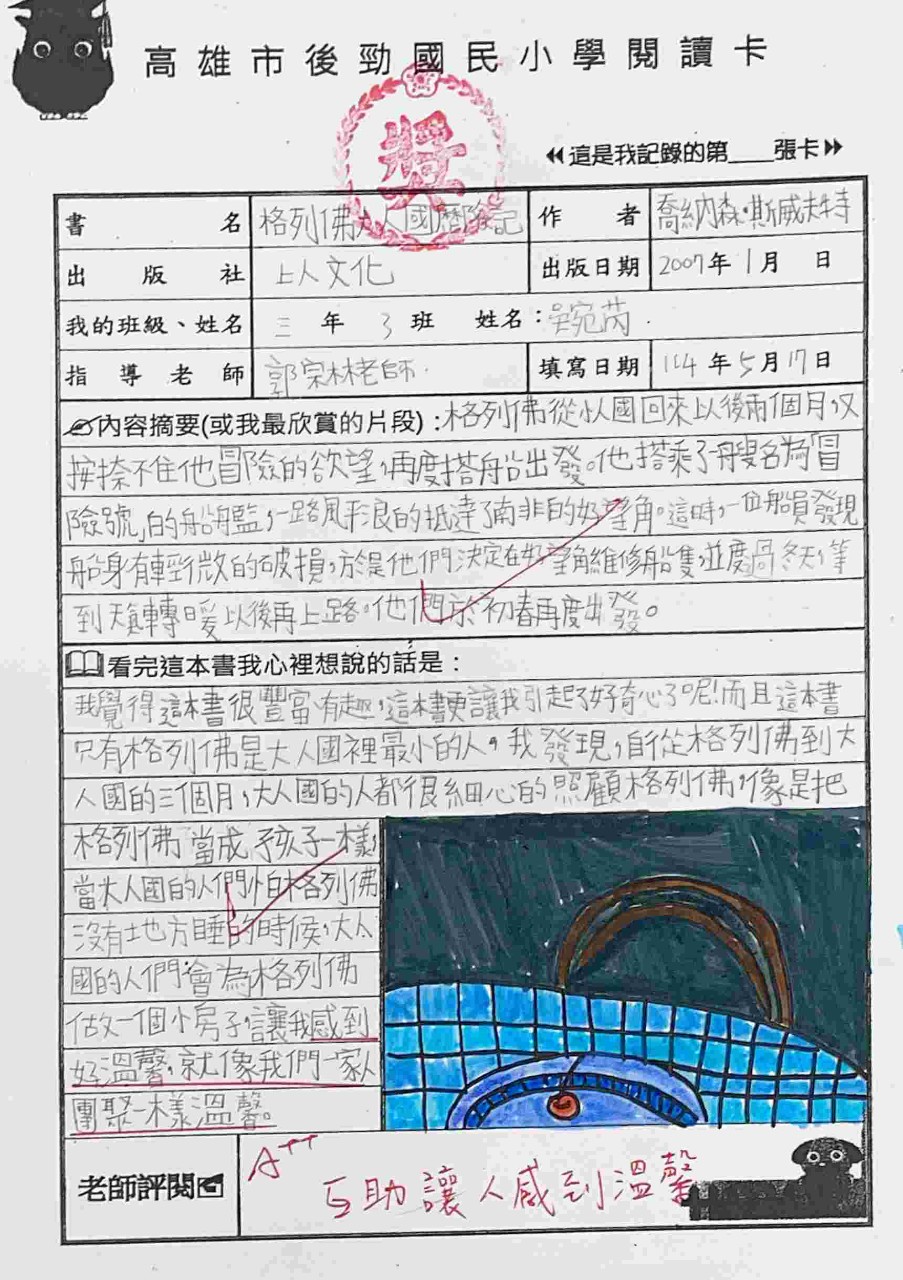 高雄市後勁國民小學閱讀卡
獎
這是我記錄的第___張卡
書名 格列佛大人國歷險記 作者 喬納森·斯威夫特
出版社 上人文化 出版日期 2007年1月 日
我的班級、姓名 三年3班 姓名:吳宛芮.
指導老師 郭宗林老師. 填寫日期 114年5月17日
內容摘要(或我最欣賞的片段):格列佛從小人國回來以後兩個月,又
按捺不住他冒險的欲望,再度搭船出發。他搭乘了一艘名為「冒
險號」的船艦,一路風平浪的抵達了南非的好望角。這時,一位船員發現
船身有輕微的破損,於是他們決定在好望角維修船隻,並度過冬天,等
到天氣轉暖以後再上路。他們於初春再度出發。
看完這本書我心裡想說的話是:
我覺得這本書很豐富有趣,這本書更讓我引起了好奇心了呢!而且這本書
只有格列佛是大人國裡最小的人。我發現,自從格列佛到大
人國的三個月,大人國的人都很細心的照顧格列佛,像是把
格列佛當成孩子一樣,
當大人國的人們怕格列佛
沒有地方睡的時候,大人
國的人們會為格列佛
做一個小房子,讓我感到
好溫馨,就像我們一家人
團聚一樣溫馨。
老師評閱 A++
互助讓人感到溫馨